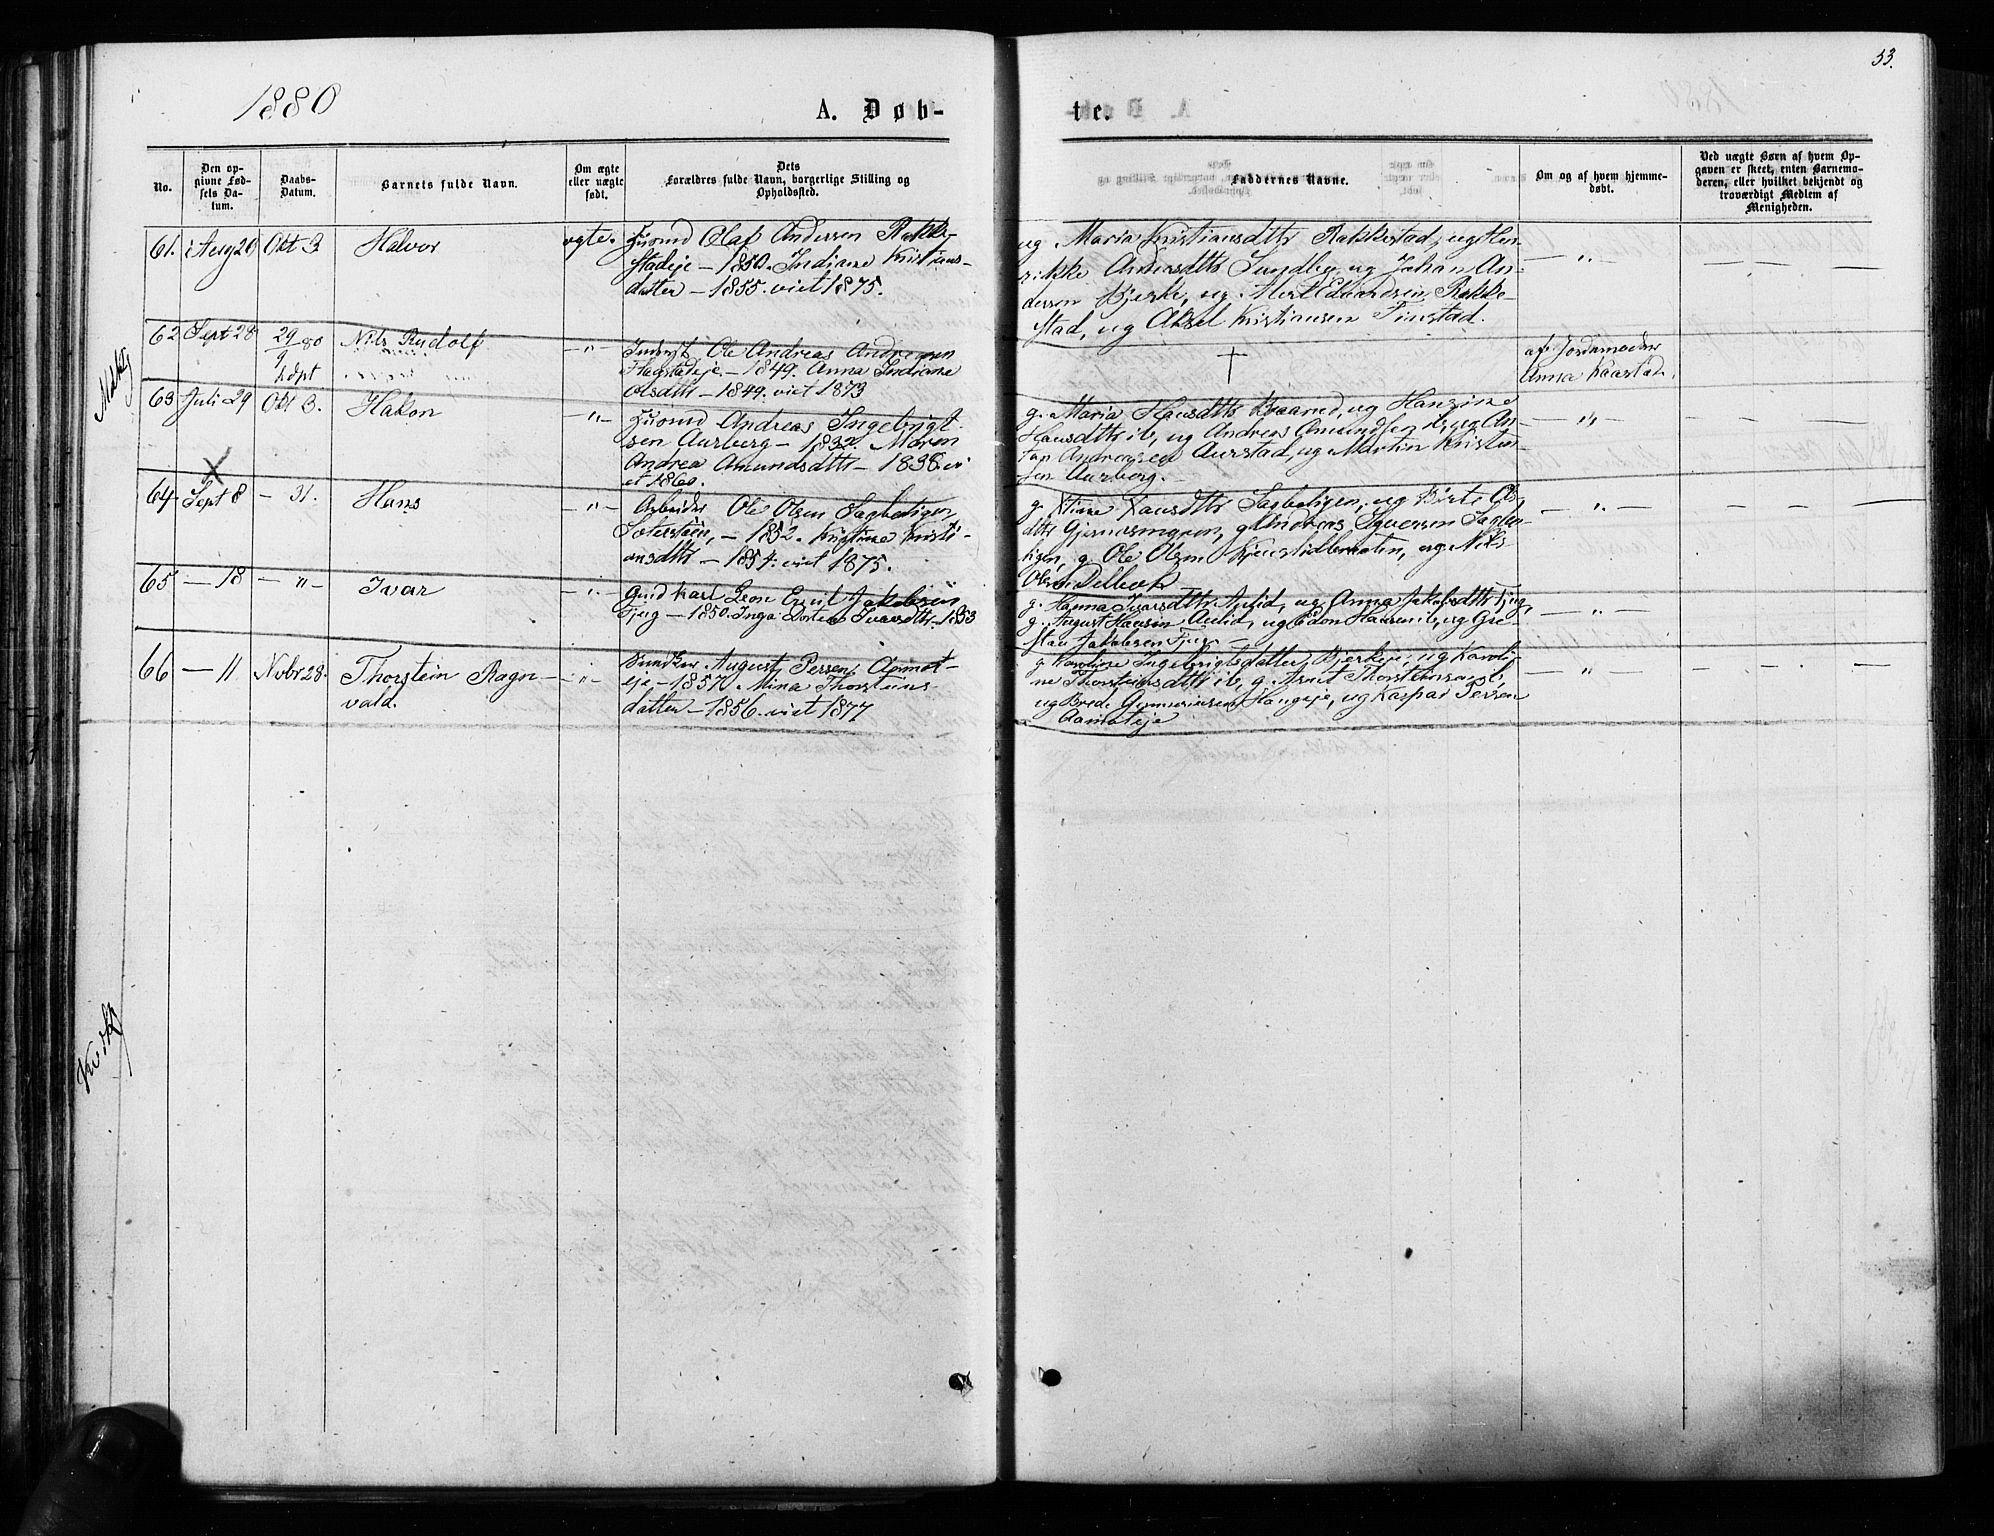 1880
A. Døb-
te.
33.
No.
Den op-
givne Fød-
sels Da-
tum.
Daabs-
Datum.
Barnets fulde Navn.
Om ægte
eller uægte
født.
Dets
Forældres fulde Navn, borgerlige Stilling og
Opholdssted.
Faddernes Navne.
Om og af hvem hjemme-
døbt.
Ved uægte Børn af hvem Op-
gaven er skeet, enten Barnemo-
deren, eller hvilket bekjendt og
troværdigt Medlem af
Menigheden.
61. Aug 20 Okt 3 Halvor ægte. Husmd Olaf Andersen Rakke-
stadeje - 1850. Indiane Kristians-
datter - 1855. viet 1875.
ug Maria Kristiansdtr Rakkestad, ug Hen-
rikke Andersdtr Sundby, ug Johan An-
dersen Bjerke, ug Edvardsen Rakke-
stad, ug Aksel Kristiansen Finstad.
62 Sept 28 29/9 80 hdpt Nils Rudolf - " - Ole Andreas Andresen
Flagstadeje - 1849. Anna Indiane
Olsdtr - 1849. viet 1873
†
af Jordemoder
Anna Kaastad.
63 Juli 29 Okt 3. Hakon " Husmd Andreas Ingebrigt-
sen Aurberg - 1832. Maren
Andrea Amundsdtr - 1838. vi
et 1860.
g. Maria Hansdtr Braarud, ug Hansine
Hansdtr ib, ug Andreas Amundsen ib, ug An-
ton Andreasen Aurstad, ug Martin Kristian-
sen Aurberg.
64 Sept 8 - 31. Hans - " - Arbeider Ole Olsen Sagboligen
- 1852. Kristine Kristi-
ansdtr - 1854. viet 1875.
g. Stine Hansdtr Sagboligen, ug Birte Ols-
dtr g Andreas Syversen Sagbo-
ligen, g. Ole Olsen ug Nils
Olsen Delbæk
65 - 18 - " - Ivar - " - Gmd Karl Leon Emil Jakobsen
Fjug - 1850. Inga Dortea Ivarsdtr. 1853
g. Hanna Ivarsdtr Aulid, ug Anna Jakobsdtr Fjug,
g. August Hansen Aulid, ug Edon Hansen ib, ug Gu-
stav Jakobsen Fjug
66 - 11 Novbr 28. Thorstein Ragn-
vald. - " - August Persen Aamot-
eje - 1857. Mina Thorsteins-
datter - 1856. viet 1877
g. Karoline Ingebrigtsdatter Bjerkeje, ug Karoli-
ne Thorsteinsdtr ib, g. Arnt Thorsteinsen ib,
ug Brede Gunnarsen Haugeje, ug Kaspar Persen
Aamoteje